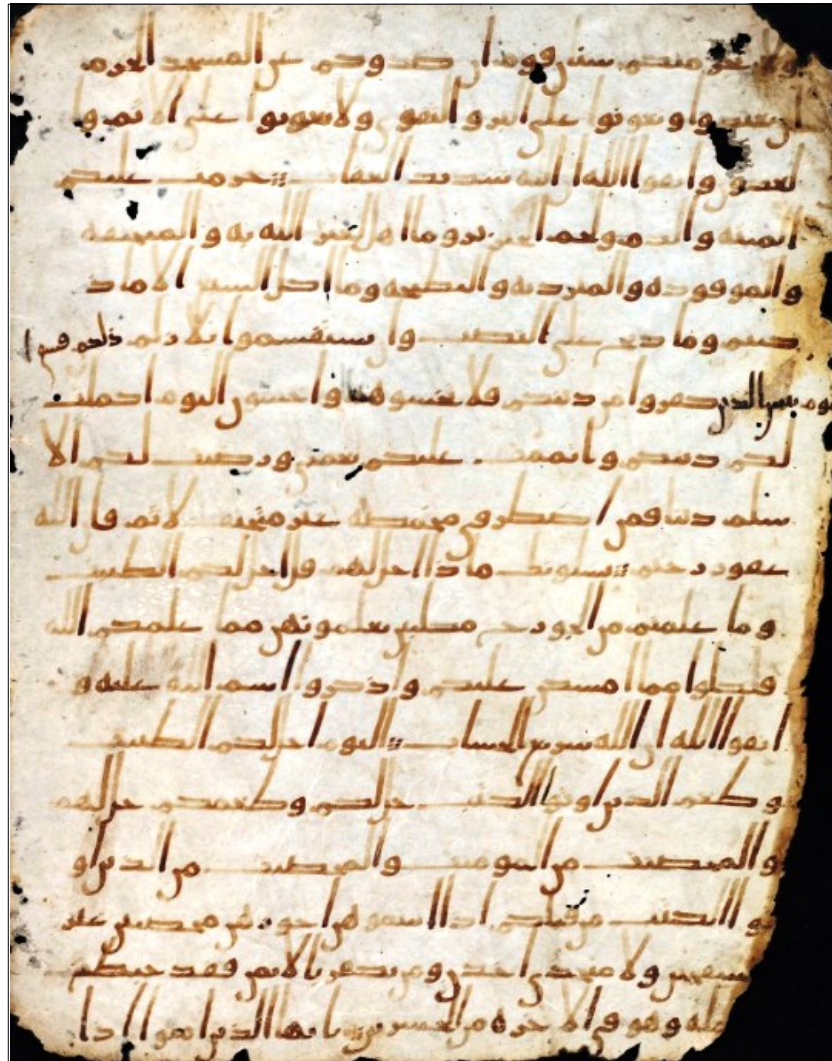 ولا يجرمنكم شنان قوم ان صدوكم عن المسجد الحرم
ان تعتدوا وتعونوا على البر والتقوى ولا تعونوا على الاثم وا
لعدون واتقوا الله ان الله شديد العقاب حرمت عليكم
الميتة والدم ولحم الخنزير وما اهل لغير الله به والمنخنقة
والموقوذة والمتردية والنطيحة وما اكل السبع الا ما ذ
كيتم وما ذبح على النصب وان تستقسموا بالازلم ذلكم فسق ا
ليوم يئس الذين كفروا من دينكم فلا تخشوهم واخشون اليوم اكملت
لكم دينكم واتممت عليكم نعمتي ورضيت لكم الا
سلم دينا فمن اضطر في مخمصة غير متجنف لاثم فان الله
غفور رحيم يسلونك ماذا احل لهم قل احل لكم الطيبت
وما علمتم من الجورح مكلبين تعلمونهن مما علمكم الله
فكلوا مما امسكن عليكم واذكروا اسم الله عليه و
اتقوا الله ان الله سريع الحساب اليوم احل لكم الطيبت
وطعم الذين اوتوا الكتب حل لكم وطعمكم حل لهم
والمحصنت من المومنت والمحصنت من الذين او
توا الكتب من قبلكم اذا اتيتموهن اجورهن محصنين غير
مسفحين ولا متخذي اخدن ومن يكفر بالايمن فقد حبط
عمله وهو في الاخرة من الخسرين يايها الذين امنوا اذا